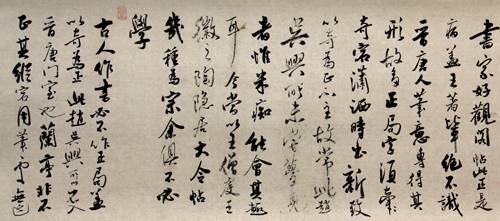 書家好觀閣帖此正是
病蓋王著輩絕不識
晉唐人筆意專得其
形故多正局字須
奇宕瀟洒時出新致
以奇為正不主故常此趙
吳興所未嘗夢見
者惟米癡能會其趣
耳今當以王僧虔王
徽之陶隱居大令帖
幾種為宗余俱不必
學
古人作書必不作正局蓋
以奇為正此趙吳興所以不入
晉唐門室也蘭亭非不
正其縱宕用筆處無迹